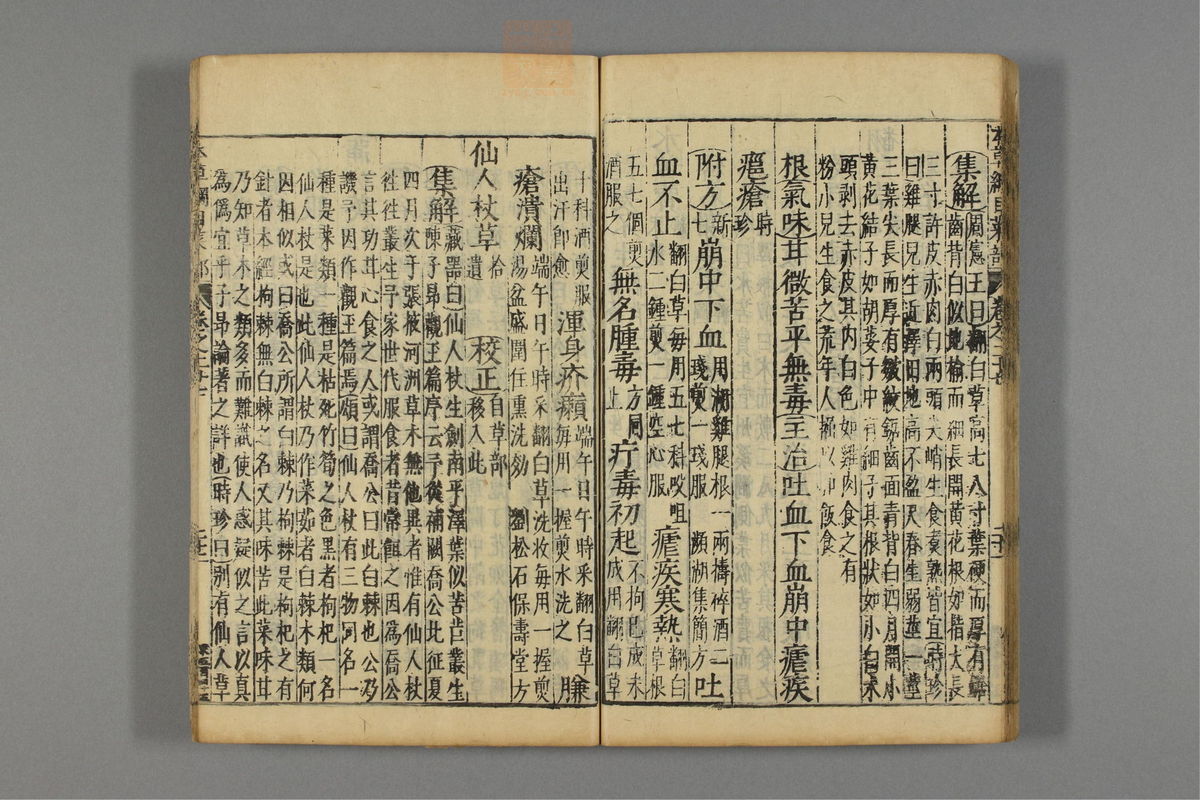 集解周憲王曰翻白草高七八寸葉硬而厚有鋸
齒背白似地榆而細長開黃花根如指大長
三寸許皮赤肉白兩頭尖峭生食煮熟皆宜時珍
曰雞腿兒生近澤田地高不盈尺春生弱莖一莖
三葉尖長而厚有皺紋鋸齒面青背白四月開小
黃花結子如胡荽子中有細子其根狀如小白朮
頭剝去赤皮其內白色如雞肉食之有
粉小兒生食之荒年人掘以和飯食
根氣味甘微苦平無毒主治吐血下血崩中瘧疾
癰瘡時珍
附方新七崩中下血用湖雞腿根一兩搗碎酒二盞煎一盞服 瀕湖集簡方吐
血不止翻白草每用五七科㕮咀水二鍾煎一鍾空心服瘧疾寒熱翻白草根
五七個煎酒服之無名腫毒方同上疔毒初起不拘已成未成用翻白草
十科酒煎服出汗即愈渾身疥癩端午日午時采翻白草每用一握煎水洗之臁
瘡潰爛端午日午時采翻白草洗收每用一握煎湯盆盛圍住熏洗効 劉松石保壽堂方
仙人杖草拾遺 校正自草部移入此
集解藏器曰仙人杖生劍南平澤葉似苦苣叢生
陳子昂觀玉篇序云予從補闕喬公北征夏
四月次于張掖河洲草木無他異者惟有仙人杖
徃徃叢生予家世代服食者昔常餌之因為喬公
言其功甘心食之人或謂喬公曰此白棘也公乃
譏予因作觀玉篇焉頌曰仙人杖有三物同名一
種是菜類一種是枯死竹筍之色黑者枸杞一名
仙人杖是也此仙人杖乃作菜茹者白棘木類何
因相似或曰喬公所謂白棘乃枸棘是枸杞之有
針者本經枸棘無白棘之名又其味苦此菜味甘
乃知草木之類多而難識使人惑疑似之言以真
為偽宜乎子昂論著之詳也時珍曰別有仙人草